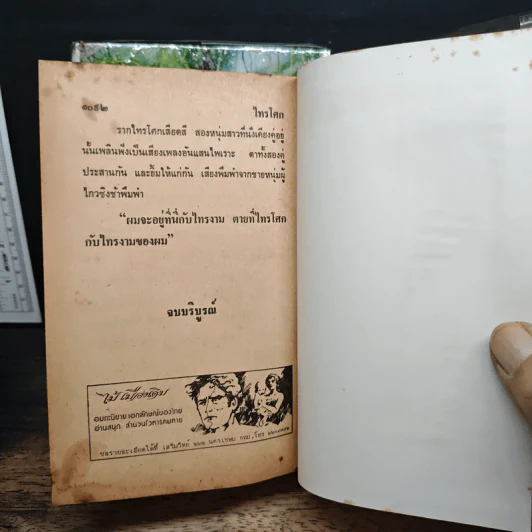 ๑๐๕๒ ไทรโศก
รากไทรโศกเสียดสี สองหนุ่มสาวที่นั่งเคียงคู่อยู่
นั้นเพลินฟังเป็นเสียงเพลงอันแสนไพเราะ ตาทั้งสองคู่
ประสานกัน และยิ้มให้แก่กัน เสียงพึมพำจากชายหนุ่มผู้
ไกวชิงช้าพึมพำ
“ผมจะอยู่ที่นี่กับไทรงาม ตายที่ไทรโศก
กับไทรงามของผม”
จบบริบูรณ์
ไม้เมืองเดิม
อมตะนิยายเอกลักษณ์ของไทย
อ่านสนุก สำนวนโวหารคมคาย
ขอรายละเอียดได้ที่ เสริมวิทย์ ๒๒๒ นครเกษม กทม. โทร